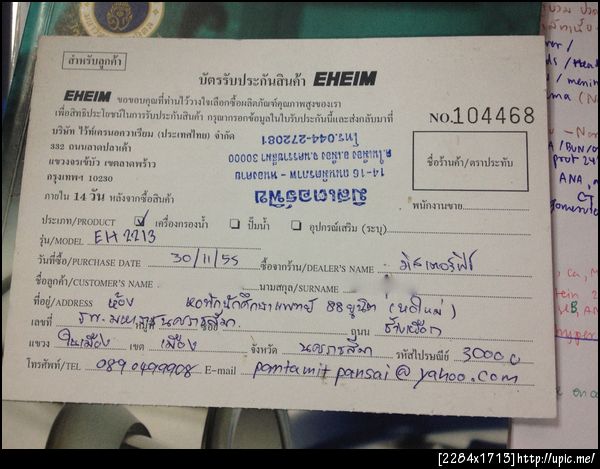 สำหรับลูกค้า
บัตรรับประกันสินค้า EHEIM
EHEIM ขอขอบคุณที่ท่านไว้วางใจเลือกซื้อผลิตภัณฑ์คุณภาพสูงของเรา
เพื่อสิทธิประโยชน์ในการรับประกันสินค้า กรุณากรอกข้อมูลในใบรับประกันนี้และส่งกลับมาที่
NO.104468
บริษัท ไร้ท์เครนอควาเรียม (ประเทศไทย) จำกัด
332 ถนนลาดปลาเค้า
แขวงจรเข้บัว เขตลาดพร้าว
กรุงเทพฯ 10230
ภายใน 14 วัน หลังจากซื้อสินค้า
มิสเตอร์ฟิช
14-16 ถนนมิตรภาพ - หนองคาย
ต.ในเมือง อ.เมือง จ.นครราชสีมา 30000
โทร.044-272081
ชื่อร้านค้า/ตราประทับ
พนักงานขาย
ประเภท/PRODUCT ✓ เครื่องกรองน้ำ ปั๊มน้ำ อุปกรณ์เสริม (ระบุ)
รุ่น/MODEL EH 2213
วันที่ซื้อ/PURCHASE DATE 30/11/55 ซื้อจากร้าน/DEALER'S NAME มิสเตอร์ฟิช
ชื่อลูกค้า/CUSTOMER'S NAME นามสกุล/SURNAME
ที่อยู่/ADDRESS ห้อง หอพักนักศึกษาแพทย์ 88 ยูนิต (หอใหม่)
เลขที่ รพ.มหาราชนครราชสีมา ถนน ช้างเผือก
แขวง ในเมือง เขต เมือง จังหวัด นครราชสีมา รหัสไปรษณีย์ 30000
โทรศัพท์/TEL 0890499908 E-mail pamtamit pansai@yahoo.com
[2284x1713]http://upic.me/